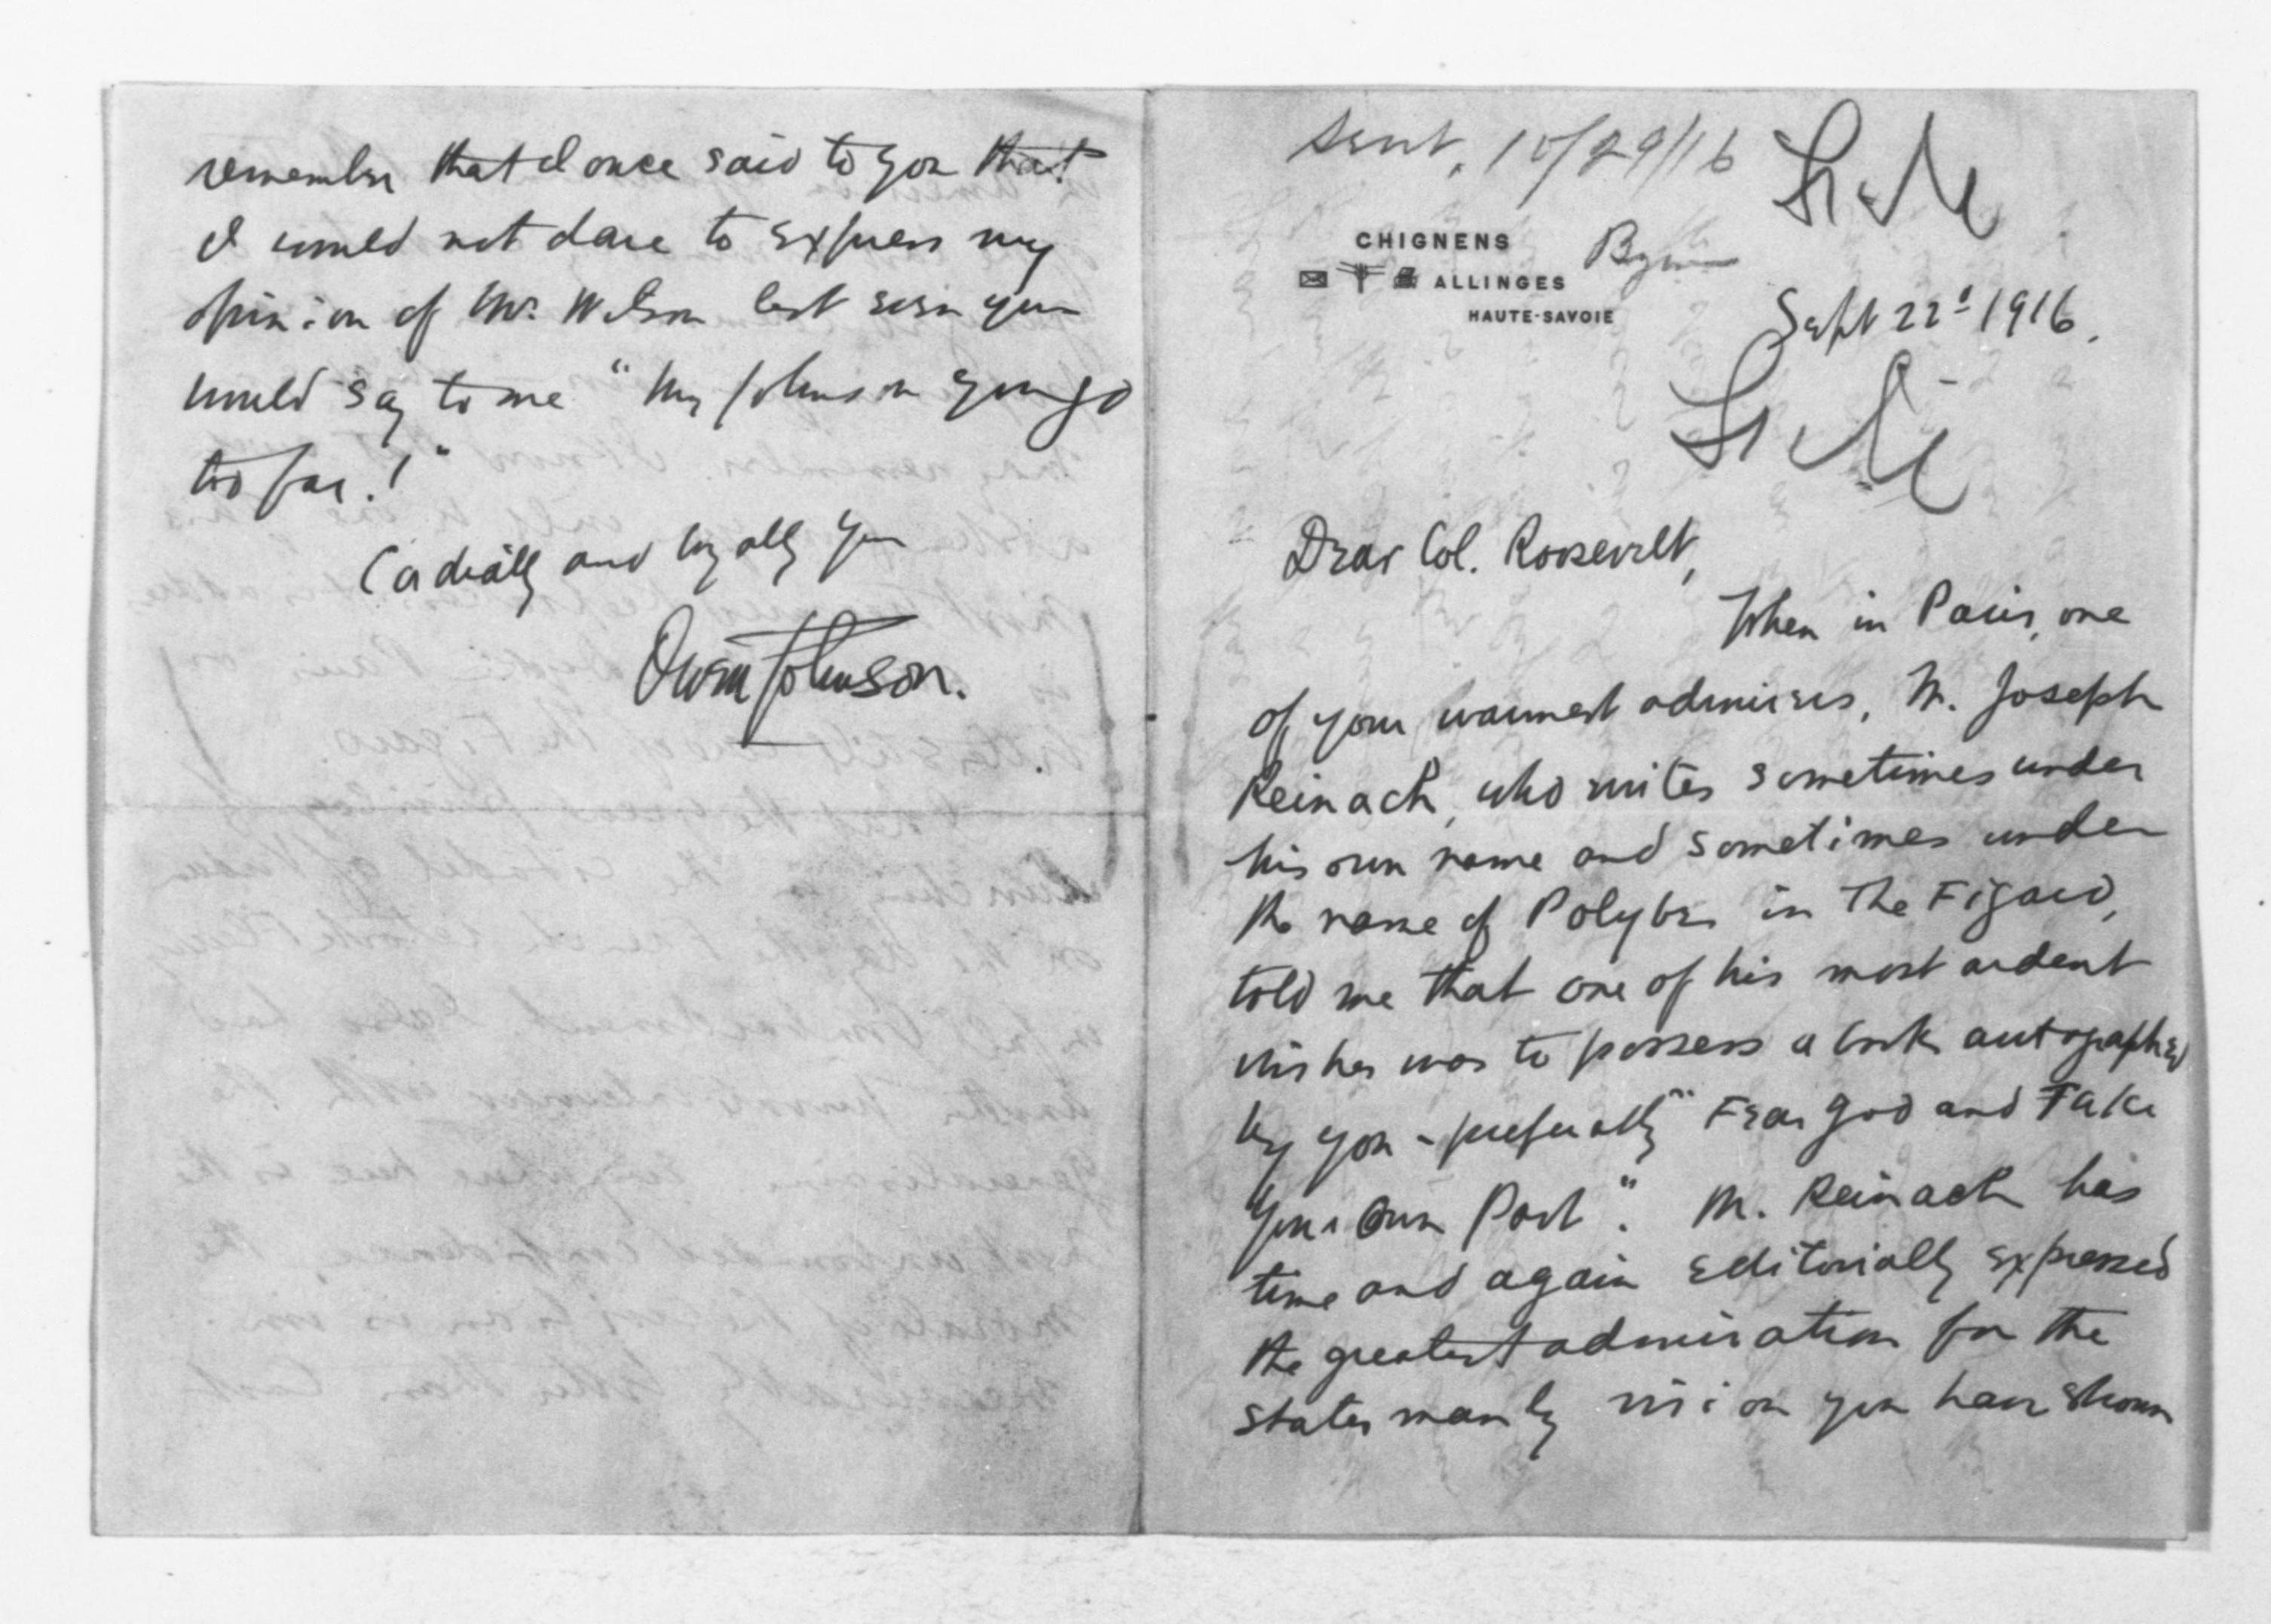 remember that I once said to you that
I would not dare to express my
opinion of Mr. Wilson lest even you
would say to me "My Johnson you go
too far!"
Cordially and loyally your
Owen Johnson.
Sent, 10/29/16
CHIGNENS
ALLINGES
HAUTE-SAVOIE
Sept 22d 1916.
Dear Col. Roosevelt,
When in Paris, one
of your warmest admirers, M. Joseph
Reinach, who writes sometimes under
his own name and sometimes under
the name of Polybe in The Figaro,
told me that one of his most ardent
wishes was to possess a book autographed
by you - preferably "Fear God and Take
Your Own Part". M. Reinach has
time and again editorially expressed
the greatest admiration for the
statesmanly vision you have shown